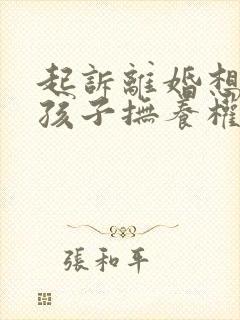 起訴離婚想
孩子撫養權
張和平